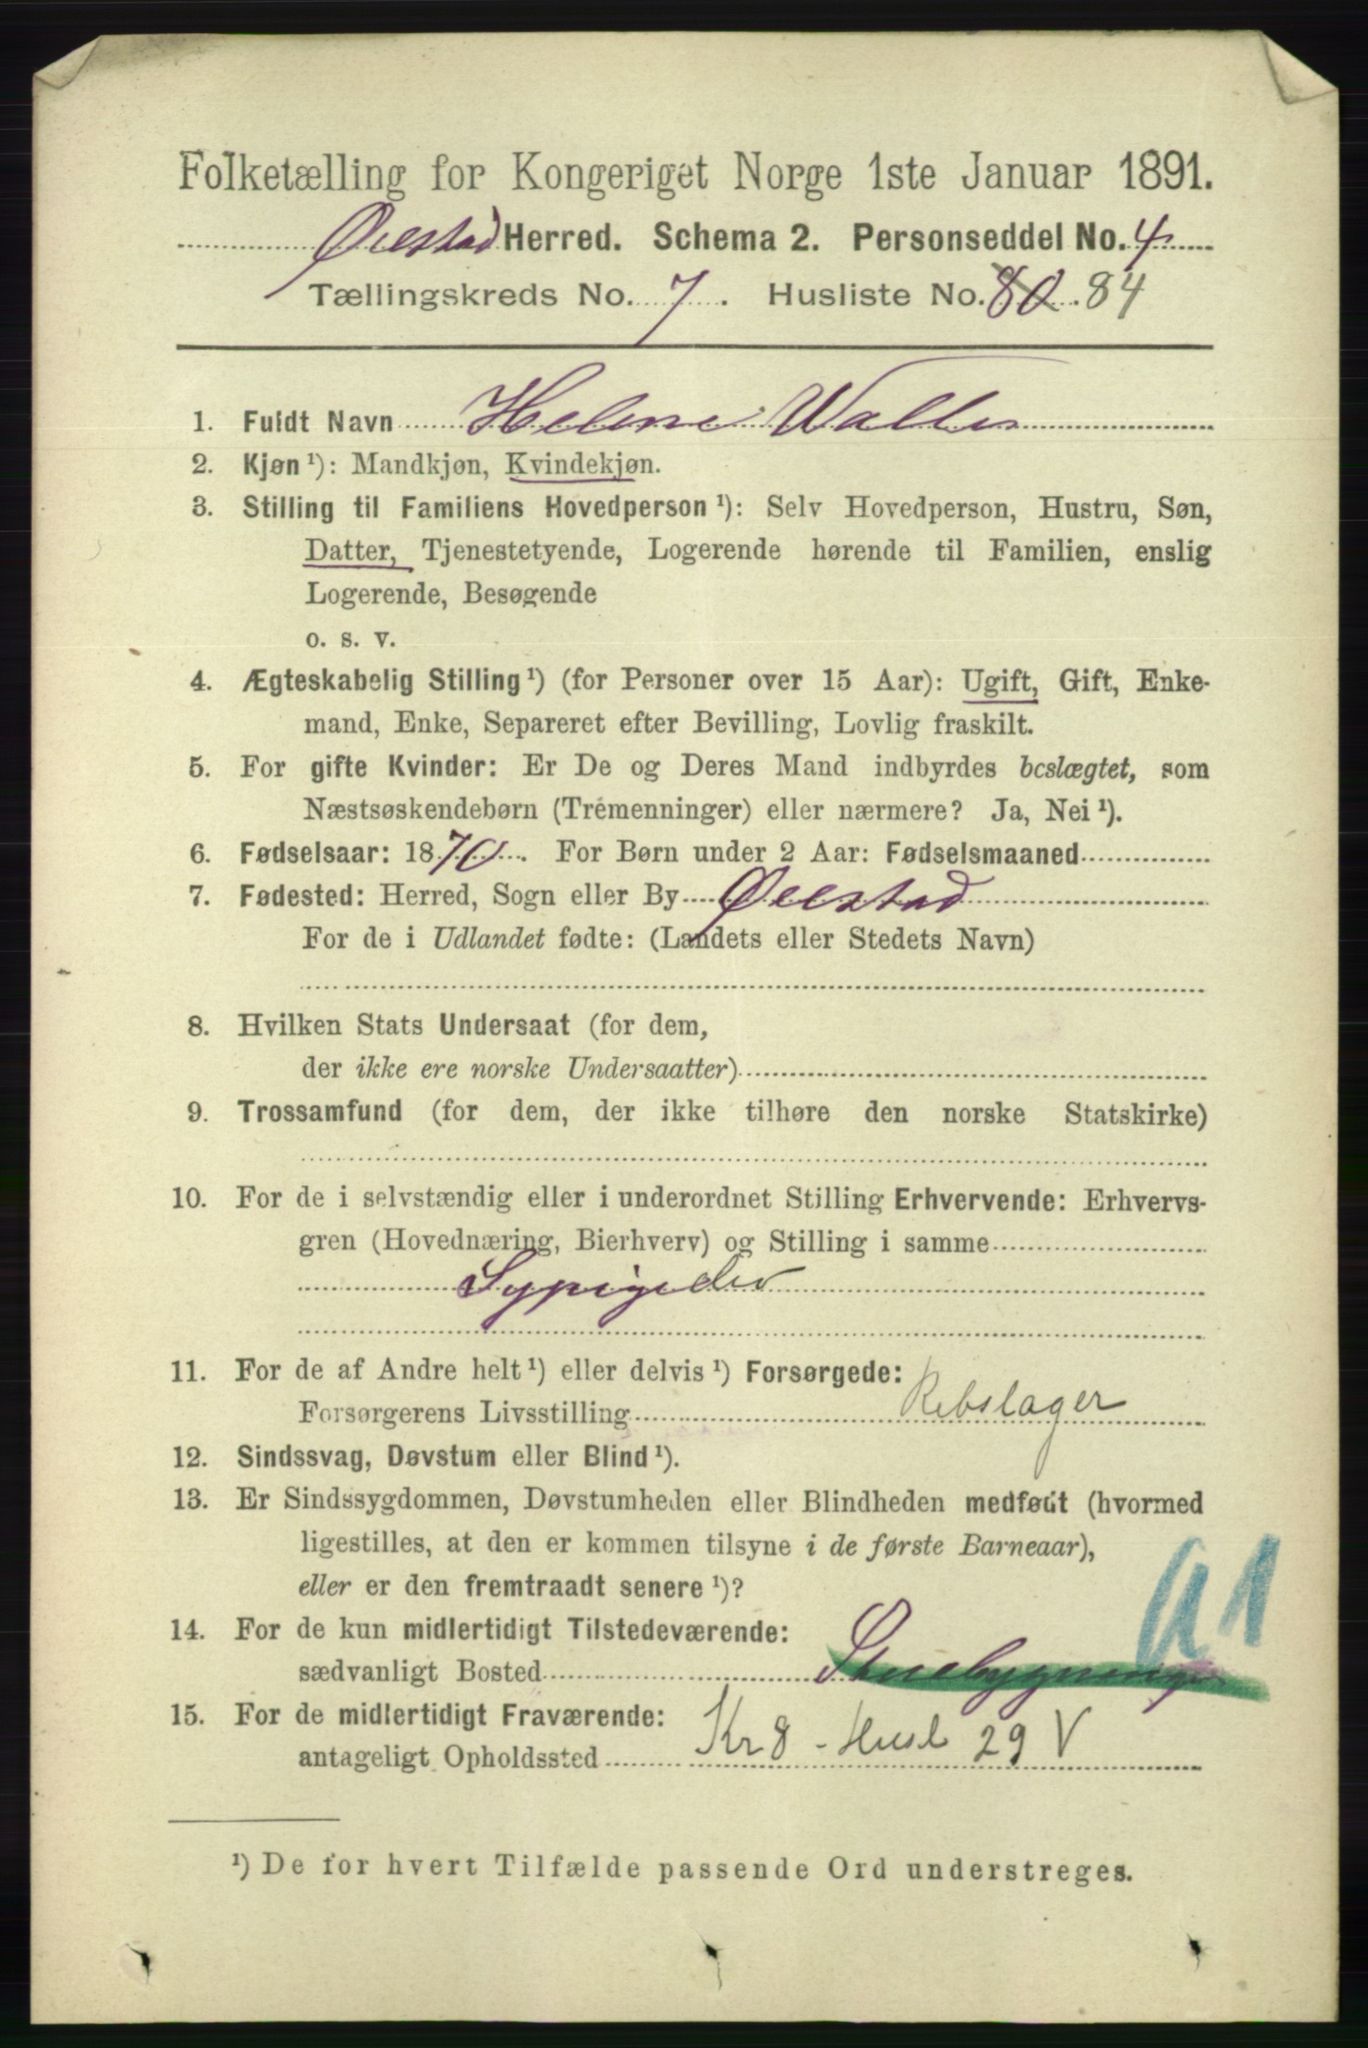 Folketælling for Kongeriget Norge 1ste Januar 1891.
Øiestad Herred. Schema 2. Personseddel No. 4
Tællingskreds No. 7. Husliste No. 80. 84
1. Fuldt Navn Helene Walle
2. Kjøn ¹): Mandkjøn, Kvindekjøn.
3. Stilling til Familiens Hovedperson ¹): Selv Hovedperson, Hustru, Søn,
Datter, Tjenestetyende, Logerende hørende til Familien, enslig
Logerende, Besøgende
o. s. v.
4. Ægteskabelig Stilling ¹) (for Personer over 15 Aar): Ugift, Gift, Enke-
mand, Enke, Separeret efter Bevilling, Lovlig fraskilt.
5. For gifte Kvinder: Er De og Deres Mand indbyrdes beslægtet, som
Næstsøskendebørn (Tremenninger) eller nærmere? Ja, Nei ¹).
6. Fødselsaar: 1870. For Børn under 2 Aar: Fødselsmaaned
7. Fødested: Herred, Sogn eller By Øiestad
For de i Udlandet fødte: (Landets eller Stedets Navn)
8. Hvilken Stats Undersaat (for dem,
der ikke ere norske Undersaatter)
9. Trossamfund (for dem, der ikke tilhøre den norske Statskirke)
10. For de i selvstændig eller i underordnet Stilling Erhvervende: Erhvervs-
gren (Hovednæring, Bierhverv) og Stilling i samme
Sypige
11. For de af Andre helt ¹) eller delvis ¹) Forsørgede:
Forsørgerens Livsstilling Rebslager
12. Sindssvag, Døvstum eller Blind ¹).
13. Er Sindssygdommen, Døvstumheden eller Blindheden medfødt (hvormed
ligestilles, at den er kommen tilsyne i de første Barneaar),
eller er den fremtraadt senere ¹)?
14. For de kun midlertidigt Tilstedeværende:
sædvanligt Bosted
15. For de midlertidigt Fraværende:
antageligt Opholdssted Kr 8 - Husl 29 V
a 1
¹) De for hvert Tilfælde passende Ord understreges.